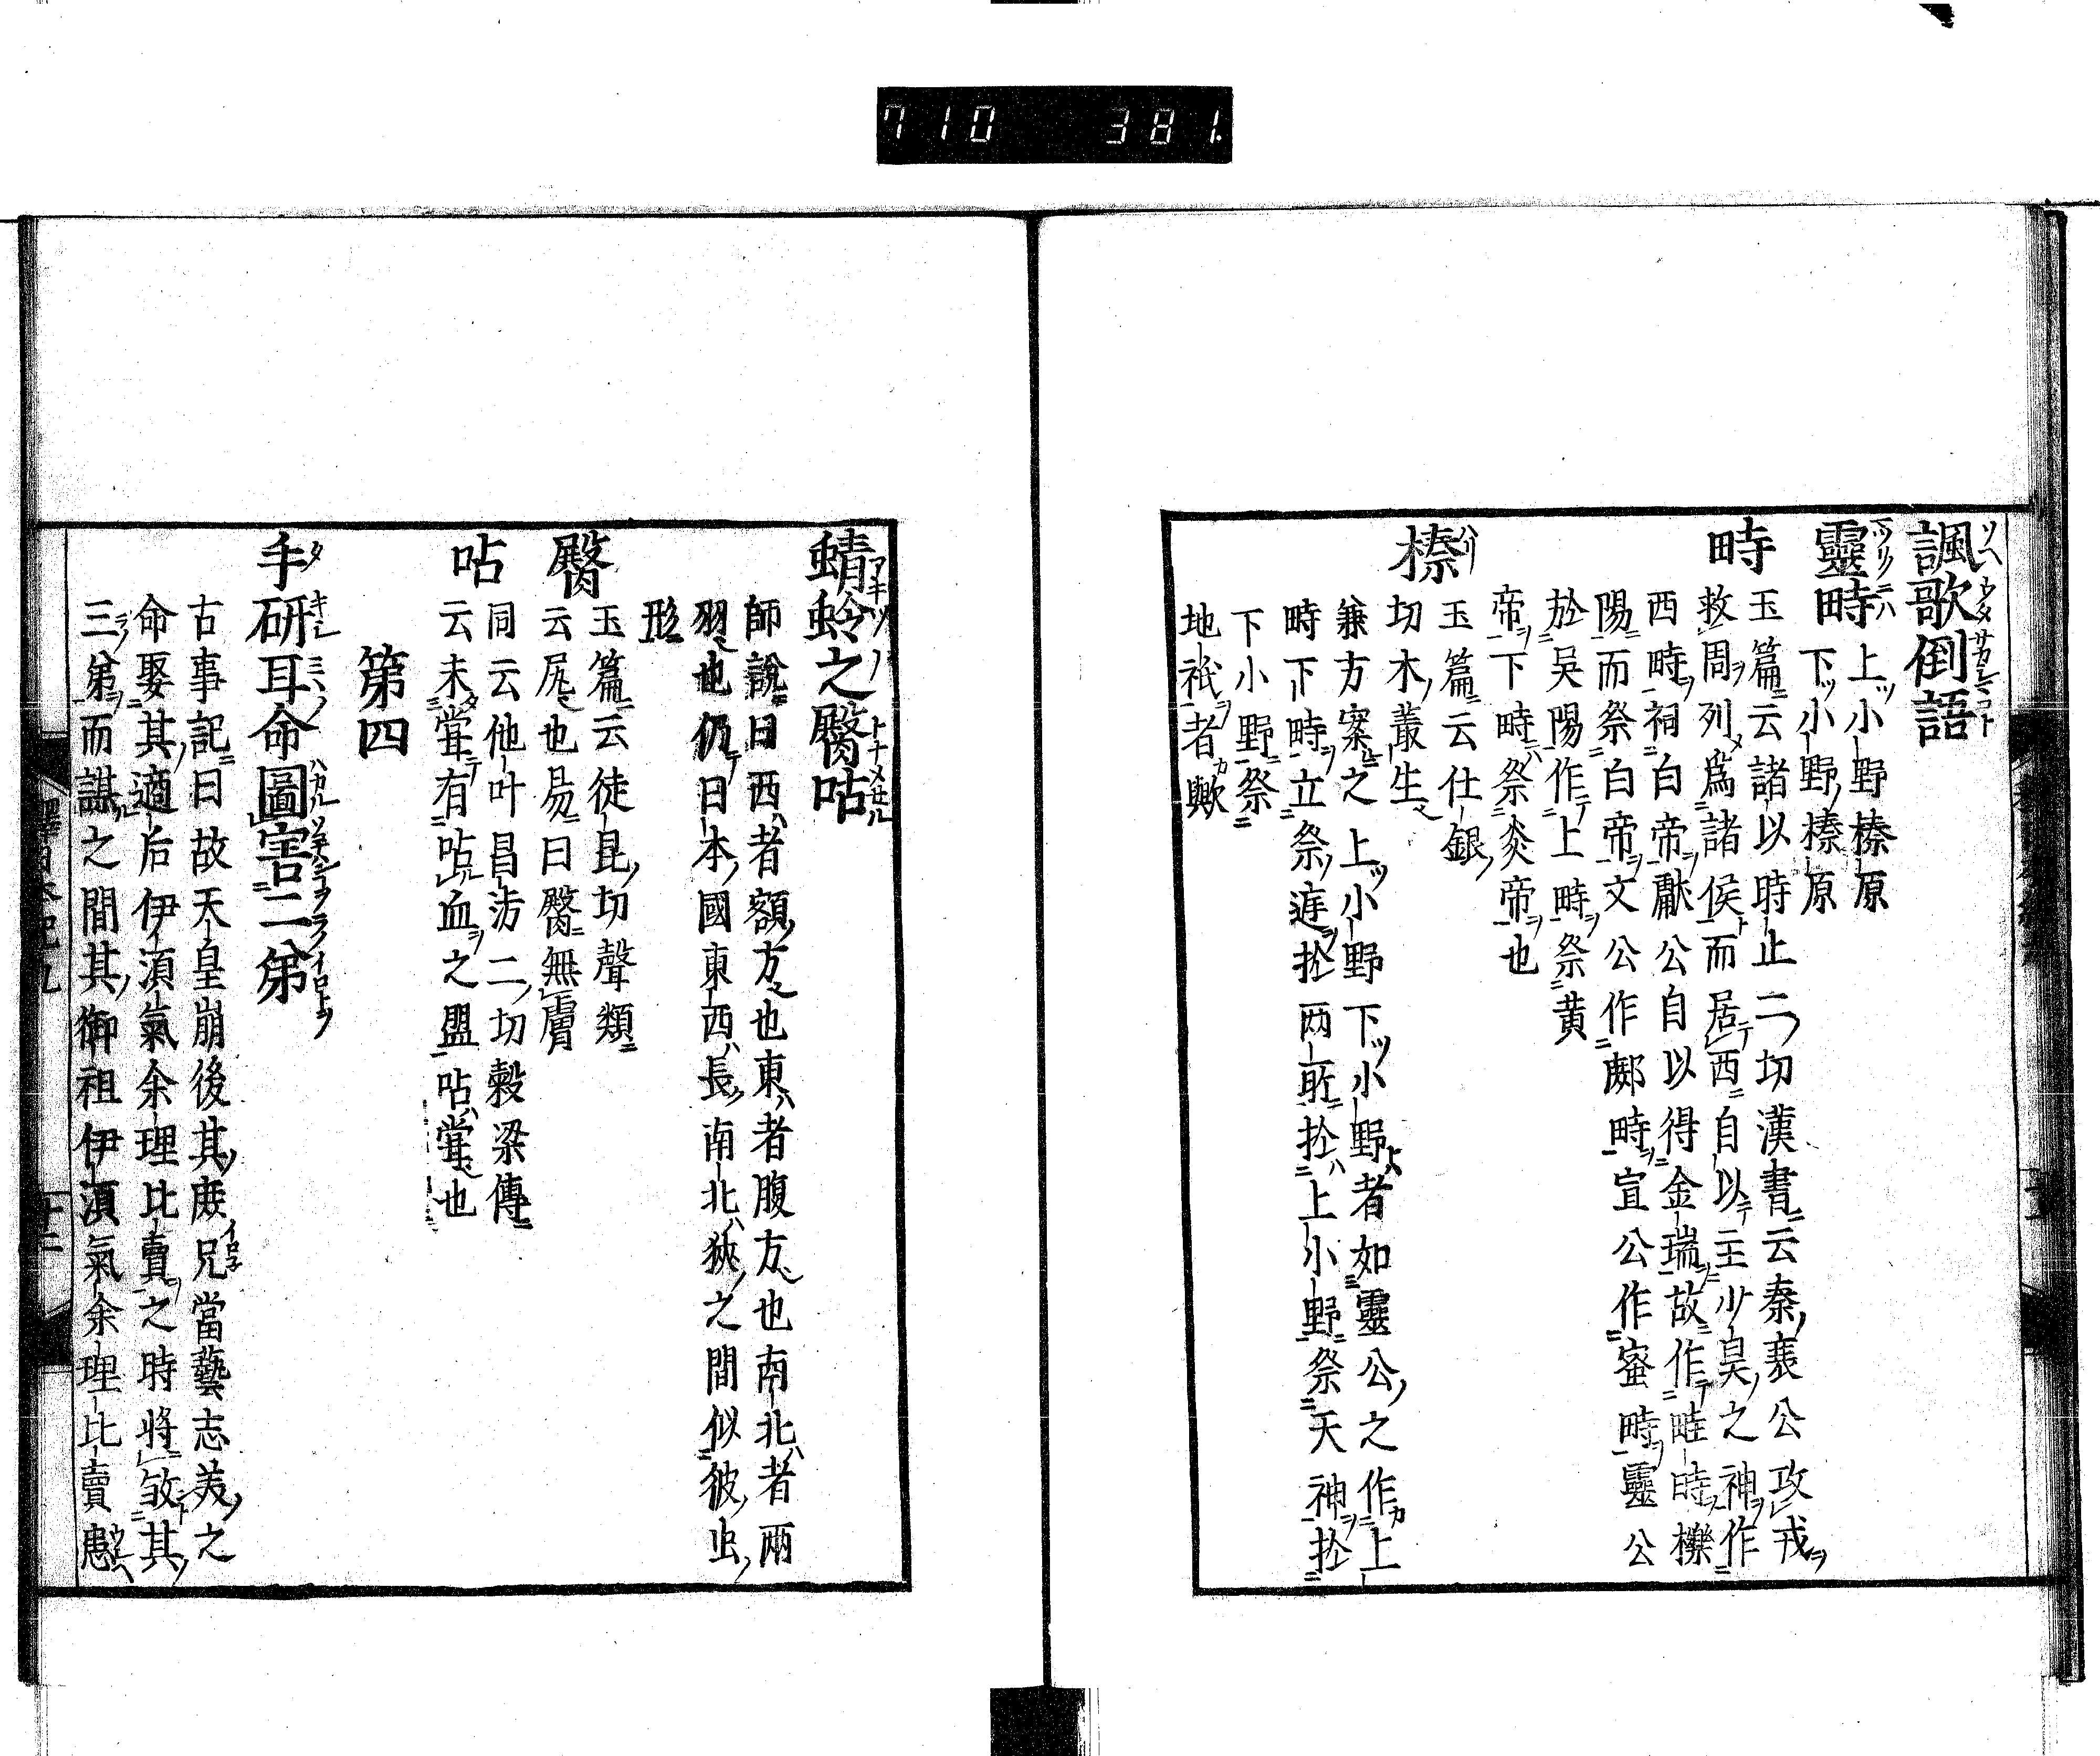 710 381.
諷歌倒語
靈畤 上ツ小野榛原
下ツ小野榛原
畤
玉篇云諸以時止二切漢書云秦襄公攻戎
救周列爲諸侯而居西自以主少昊之神作
西畤祠白帝獻公自以得金瑞故作畦畤櫟
陽而祭白帝文公作鄜畤宣公作密畤靈公
於吳陽作上畤祭黄
帝下畤祭炎帝也
榛
玉篇云仕銀
切木叢生
兼方案之上ツ小野下ツ小野者如靈公之作上
畤下畤立祭庭於兩所於上小野祭天神於
下小野祭
地祇者歟
蜻蛉之臀呫
師說曰西者額方也東者腹方也南北者兩
羽也仍日本國東西長南北狹之間似彼虫
形
臀
玉篇云徒昆切聲類
云尻也易曰臀無膚
呫
同云他叶昌涉二切穀梁傳
云未嘗有呫血之盟呫嘗也
第四
手研耳命圖害二弟
古事記曰故天皇崩後其庶兄當藝志美之
命娶其適后伊須氣余理比賣之時將殺其
三弟而謀之間其御祖伊須氣余理比賣患
釋日本紀九